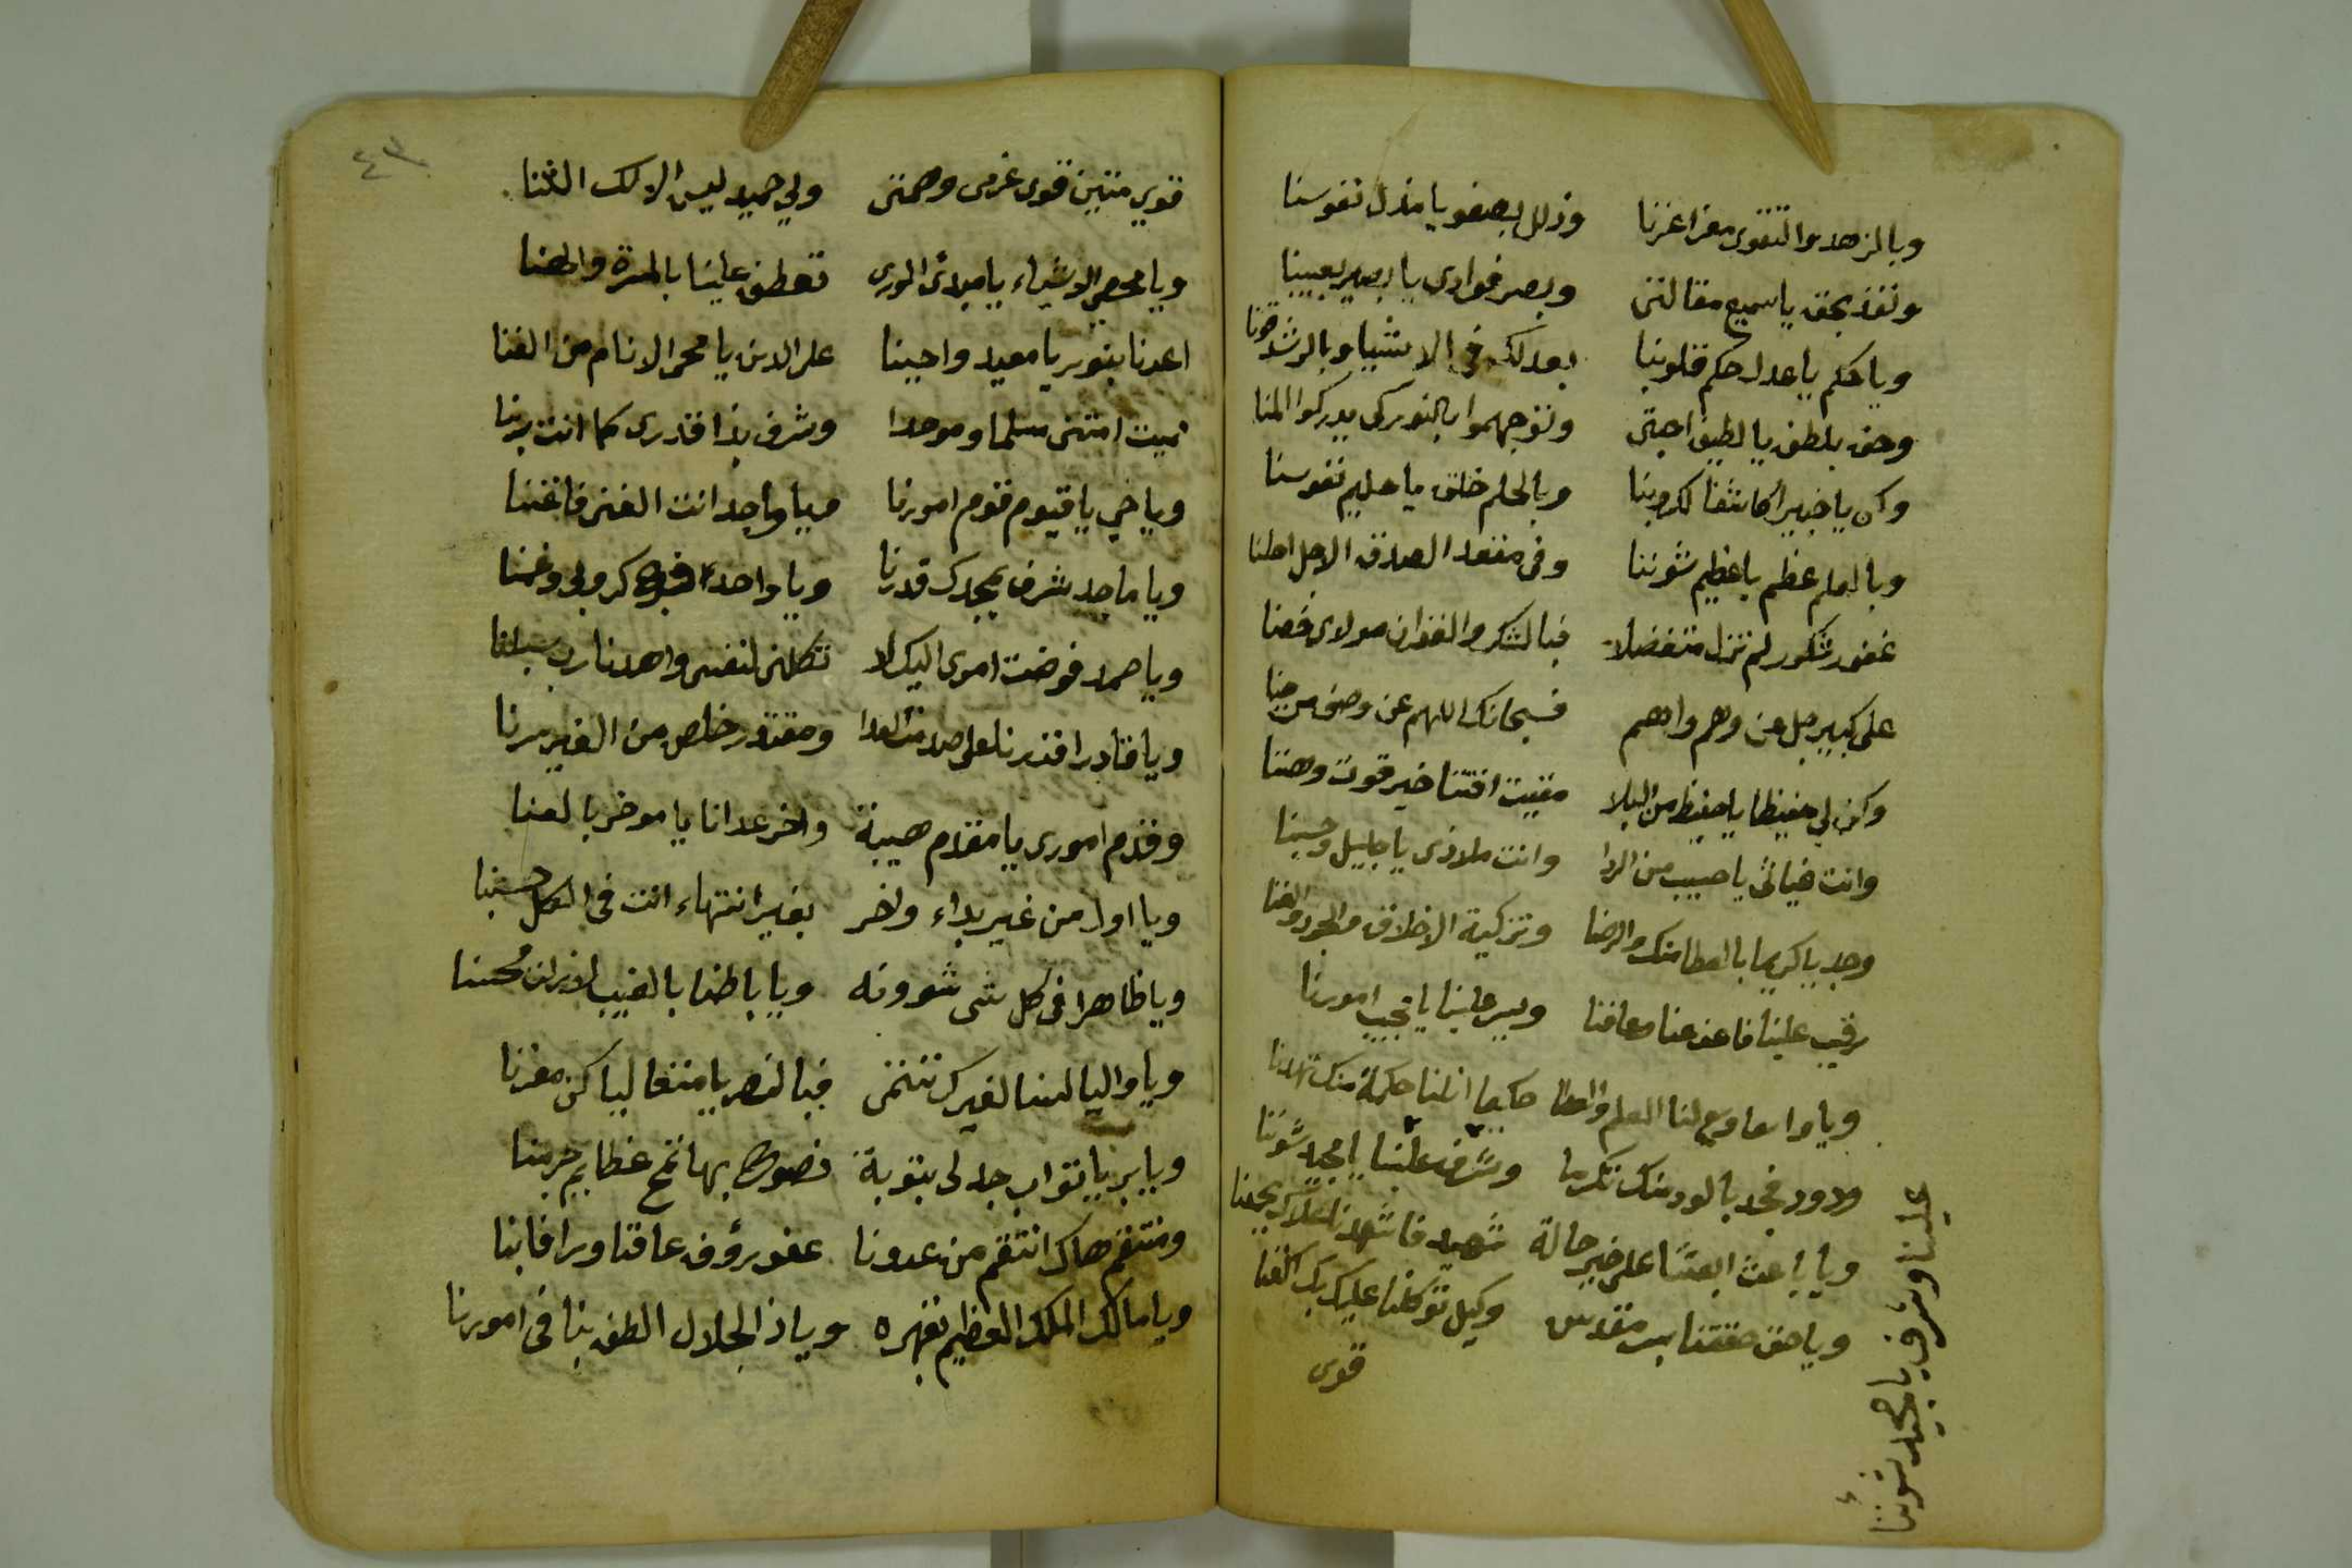 وبالزهد والتقوى معز اعزنا وذلل بصفو يا مذل نفوسنا
ونفذ بحق يا سميع مقالتى وبصر فوادى يا بصير بعيبنا
ويا حكم يا عدل حكم قلوبنا بعدلك فى الاشيا وبالرشد قونا
وحف بلطف يا لطيف احبتى وتوجهموا بالنور كى يدركوا المنا
وكن يا خبيرا كاشفا لكروبنا وبالحلم خلق يا حليم نفوسنا
وبالعلم عظم يا عظيم شؤننا وفى مقعد الصدق الاجل احلنا
غفور شكور لم تزل متفضلا فبالشكر والغفران مولاى خصنا
على كبير جل عن وهم واهم فسبحانك اللهم عن وصف من جنا
وكن لي حفيظا يا حفيظ من البلا مقيت اقتنا خير قوت وهننا
وانت غياثى يا حسيب من الردا وانت ملاذى يا جليل وحسبنا
وجد يا كريما بالعطا منك والرضا وتزكية الاخلاق والجود والغنا
رقيب علينا فاعف عنا وعافنا ويسر علينا يا مجيب امورنا
ويا واسعا وسع لنا العلم والعطا حكيما انلنا حكمة منك تهدنا
ودود فجد بالود منك تكرما وشرف علينا يا مجيد شؤننا
ويا باعث ابعثنا على خير حالة شهيد فاشهدنا علاك بجمعنا
ويا حق حققنا بسر مقدس وكيل توكلنا عليك بك اكفنا
قوى
علينا وشرف يا مجيد شؤننا
٤٣
قوي متين قوى عزمى وهمتى ولي حميد ليس الا لك الثنا
ويا محصى الاشياء يا مبدئ الورى تعطف علينا بالمسرة والهنا
اعدنا بنور يا معيد واحينا على الدين يا محى الانام من الفنا
مميت امتنى مسلما وموحدا وشرف بذا قدرى كما انت ربنا
ويا حي يا قيوم قوم امورنا ويا واجد انت الغنى فاغننا
ويا ماجد شرف بمجدك قدرنا ويا واحد فرج كروبي وغمنا
ويا صمد فوضت امرى اليك لا تكلنى لنفسى واهدنا رب سبلنا
ويا قادر اقدرنا على صدمة العدا ومقتدر خلص من الغير سرنا
وقدم امورى يا مقدم هيبة واخر عدانا يا موخر بالعنا
ويا اول من غير بداء واخر بغير انتهاء انت فى الكل حسبنا
ويا ظاهرا فى كل شى شوونه ويا باطنا بالغيب لا زلت محسنا
ويا واليا لسنا لغيرك ننتمى فبالنصر يا متعاليا كن معزنا
ويا بر يا تواب جد لى بتوبة نصوح بها تمح عظايم جرمنا
ومنتقم هاك انتقم من عدونا عفو رؤف عافنا وارافا بنا
ويا مالك الملك العظيم بقهره ويا ذا الجلال الطف بنا فى امورنا